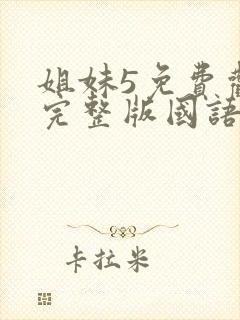 姐妹5免費觀
完整版國語
卡拉米